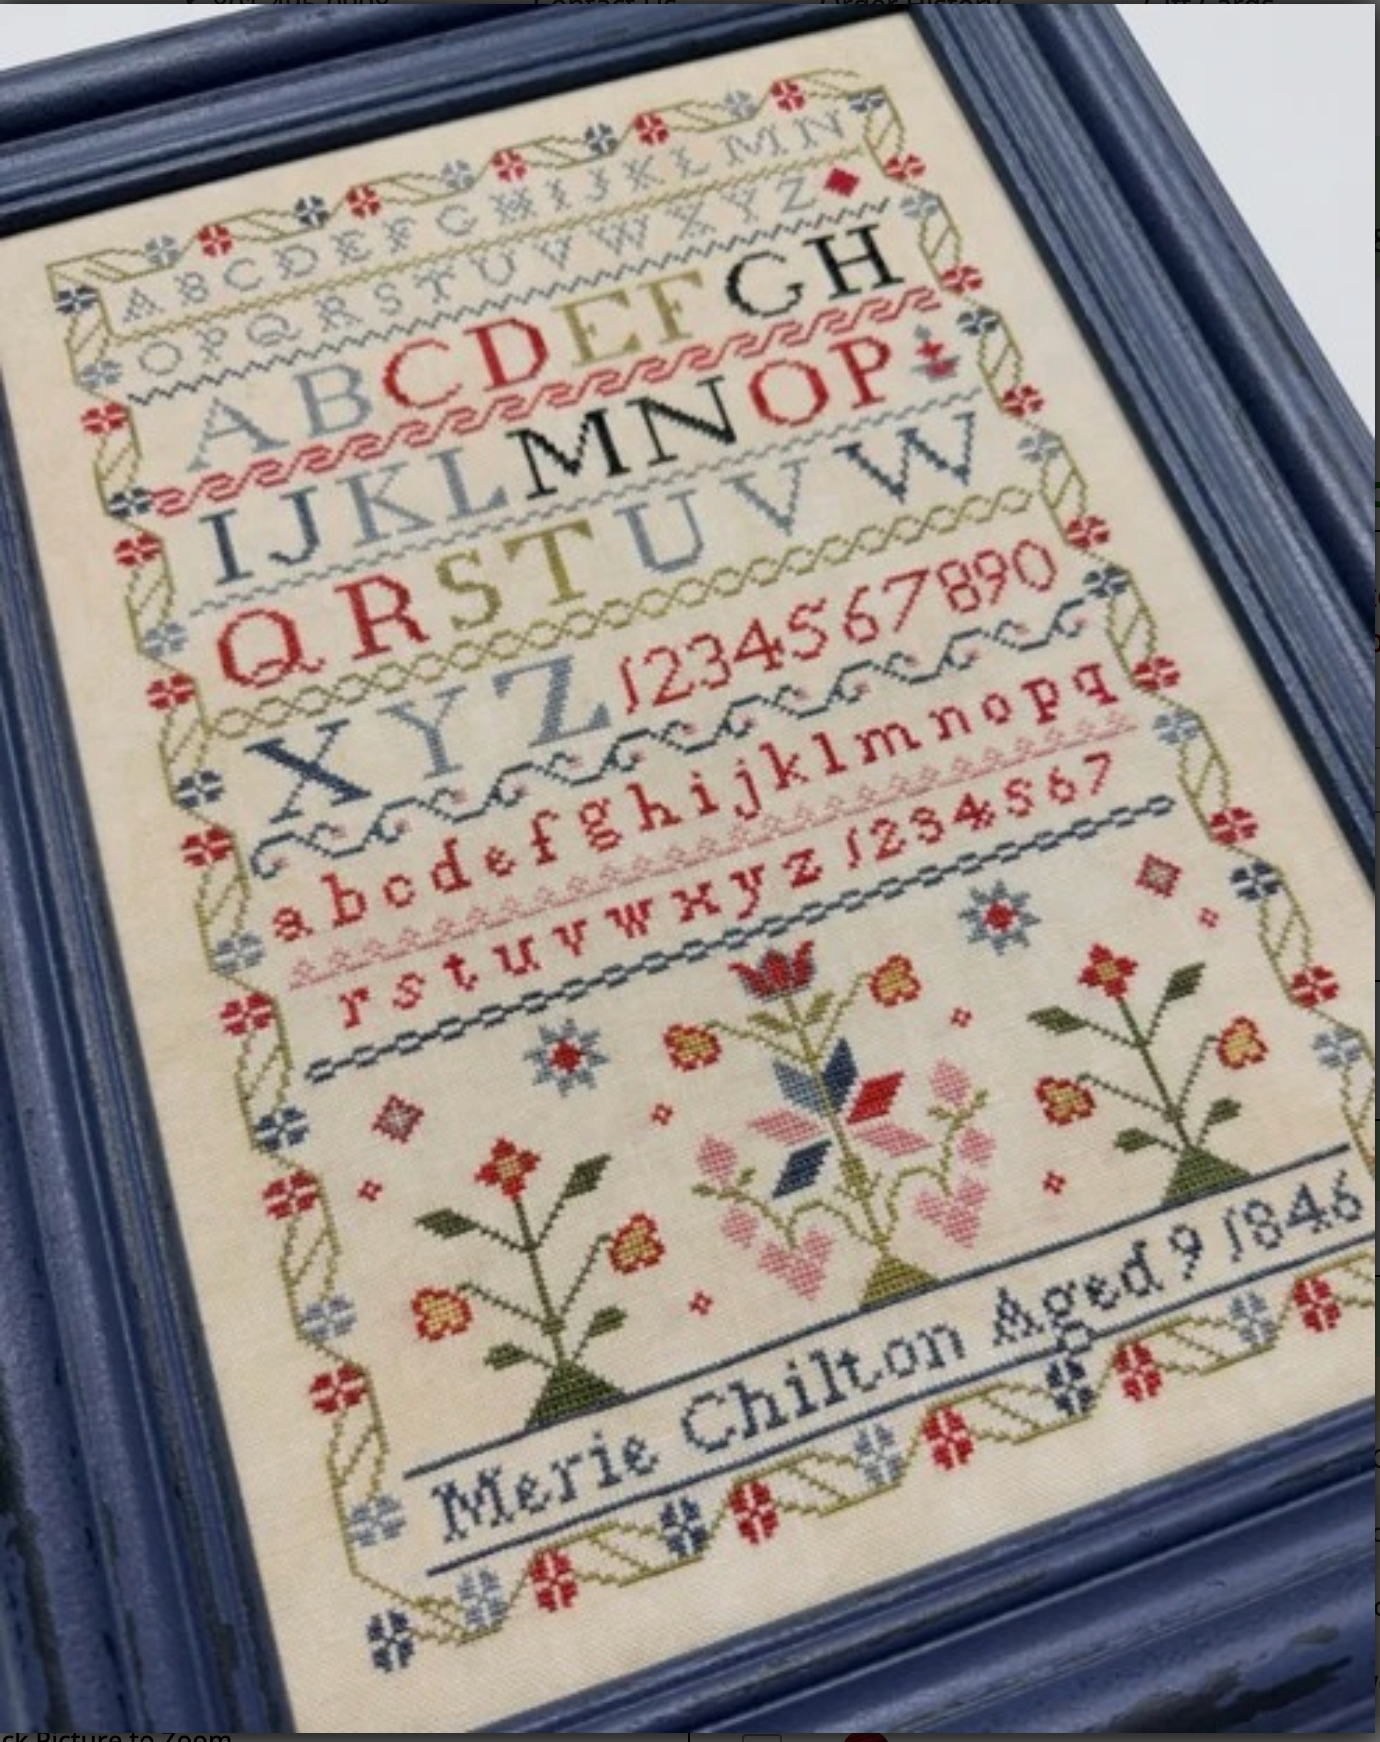 Contact Us Order History Gift Cards
ABCDEFGHIJKLMN
OPQRSTUVWXYZ
ABCDEFGH
IJKLMNOP
QRSTUVW
XYZ 1234567890
abcdefghijklmnopq
rstuvwxyz 1234567
Merie Chilton Aged 9 1846
ck Picture to Zoom